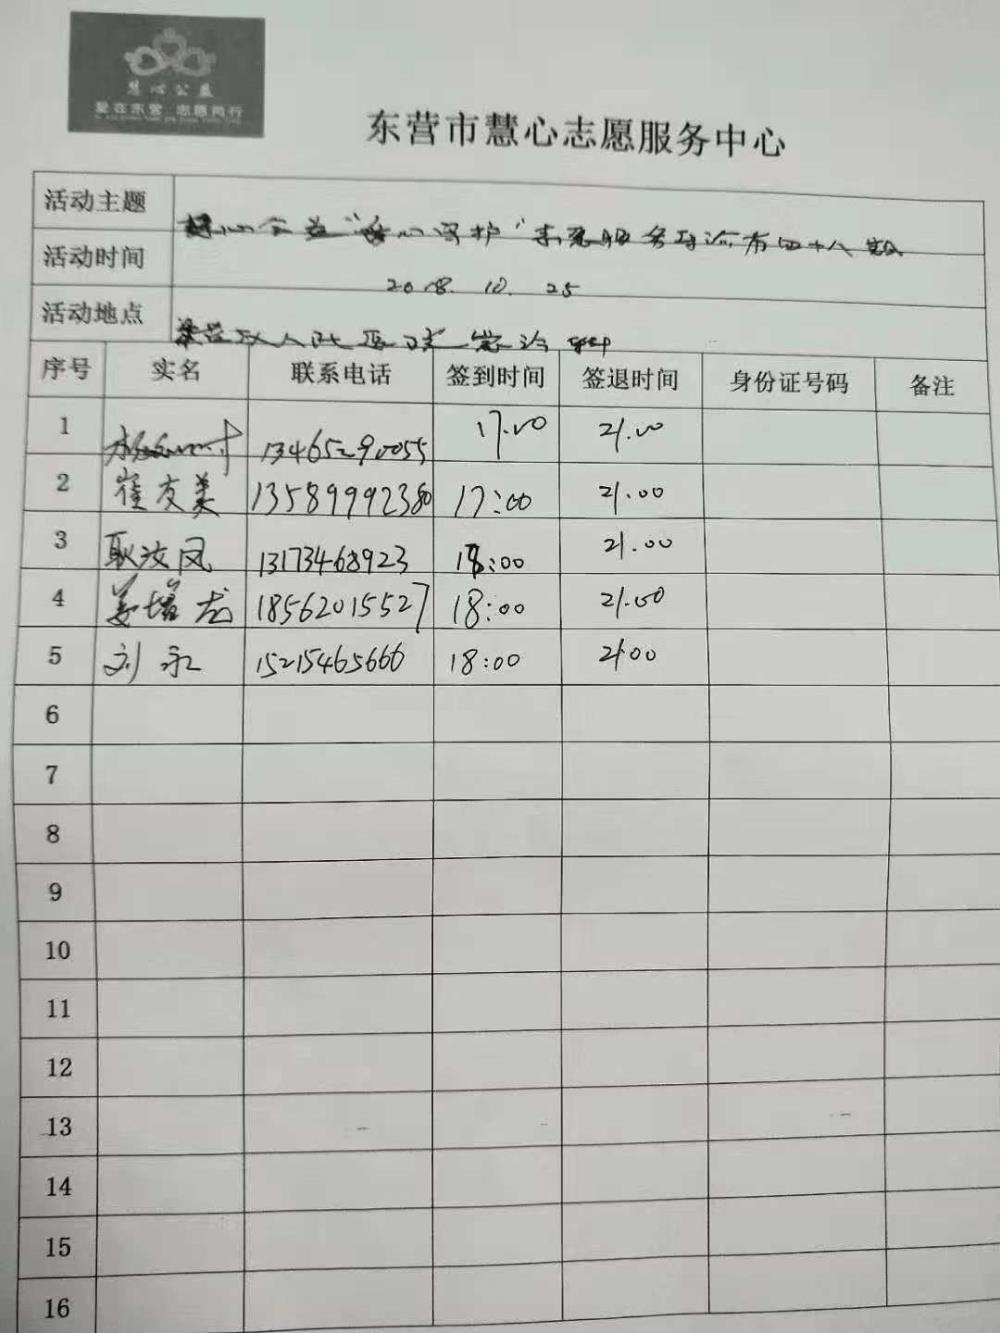 慧心公益
爱在东营 志愿同行
东营市慧心志愿服务中心
活动主题 慧心公益“ 心守护”志愿服务导诊 四十八期
活动时间 2018. 10. 25
活动地点 人民医院 急诊
序号 实名 联系电话 签到时间 签退时间 身份证号码 备注
1 13465290055 17.00 21.00
2 崔友美 13589992380 17:00 21.00
3 耿汝凤 13173468923 18:00 21.00
4 姜增龙 18562015527 18:00 21.00
5 刘永 15215465666 18:00 21:00
6
7
8
9
10
11
12
13
14
15
16